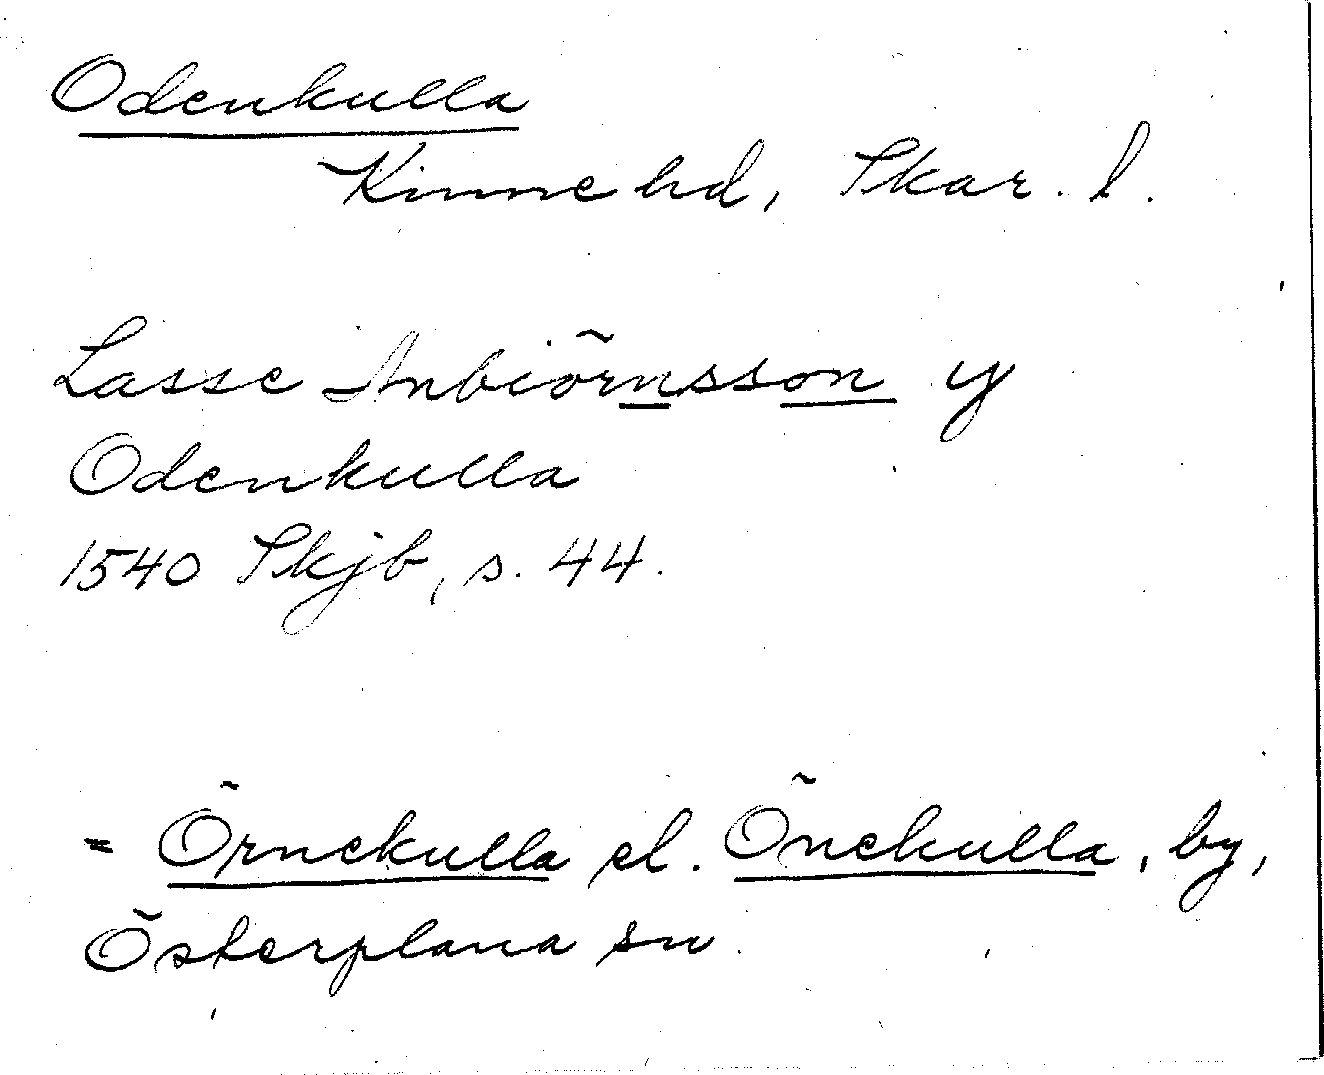 Odenkulla
Kinne hd, Skar. l.
Lasse Anbiörnsson y
Odenkulla
1540 Skjb, s. 44.
= Örnekulla el. Önekulla, by,
Österplana sn.